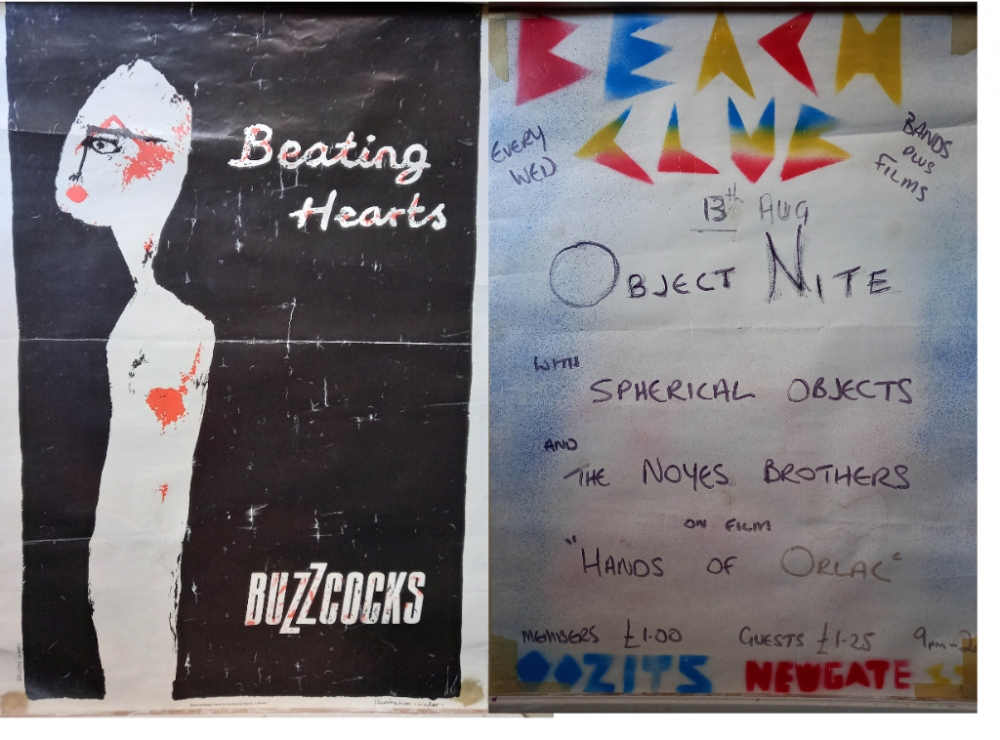 Beating
Hearts
BUZZCOCKS
BEACH
CLUB
EVERY
WED
BANDS
PLUS
FILMS
13th AUG
OBJECT NITE
WITH
SPHERICAL OBJECTS
AND
THE NOYES BROTHERS
ON FILM
"HANDS OF ORLAC"
MEMBERS £1.00 GUESTS £1.25 9pm-2
OOZITS NEWGATE